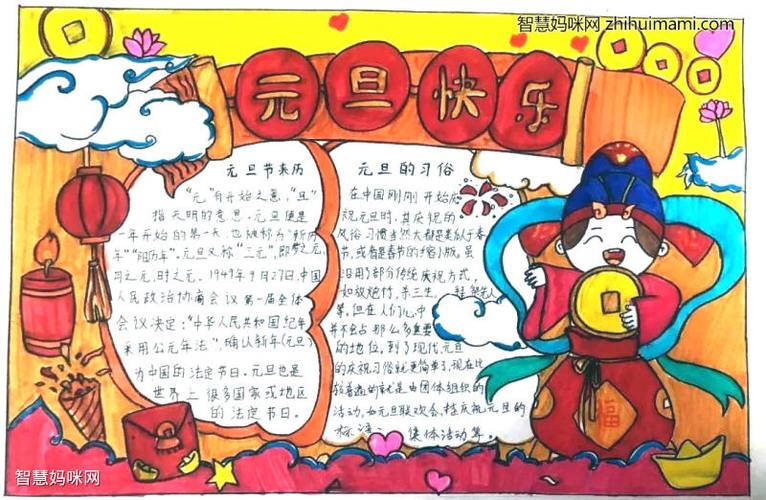 智慧妈咪网 zhihuimami.com
元旦快乐
元旦节来历
"元"有开始之意，"旦"
指天明的意思。元旦便是
一年开始的第一天，也被称为"新历
年""阳历年"。元旦又称"三元"，即岁之元、
月之元，时之元。1949年9月27日，中国
人民政治协商会议第一届全体
会议决定："中华人民共和国纪年
采用公元年法"，确认新年(元旦)
为中国的法定节日。元旦也是
世界上很多国家或地区
的法定节日。
元旦的习俗
在中国刚刚开始庆
祝元旦时，其庆祝的
风俗习惯当然大都是类似于春
节，或者是春节的缩小版。虽
沿用了部分传统庆祝方式，
如放炮竹，杀三生，
等，但在人们心中
并不会占那么多重要
的地位，到了现代，元旦
的庆祝习俗就更简单了，现在比
较普遍的就是由团体组织的
活动，如元旦联欢会，挂庆祝元旦的
标语、集体活动等。
福
智慧妈咪网